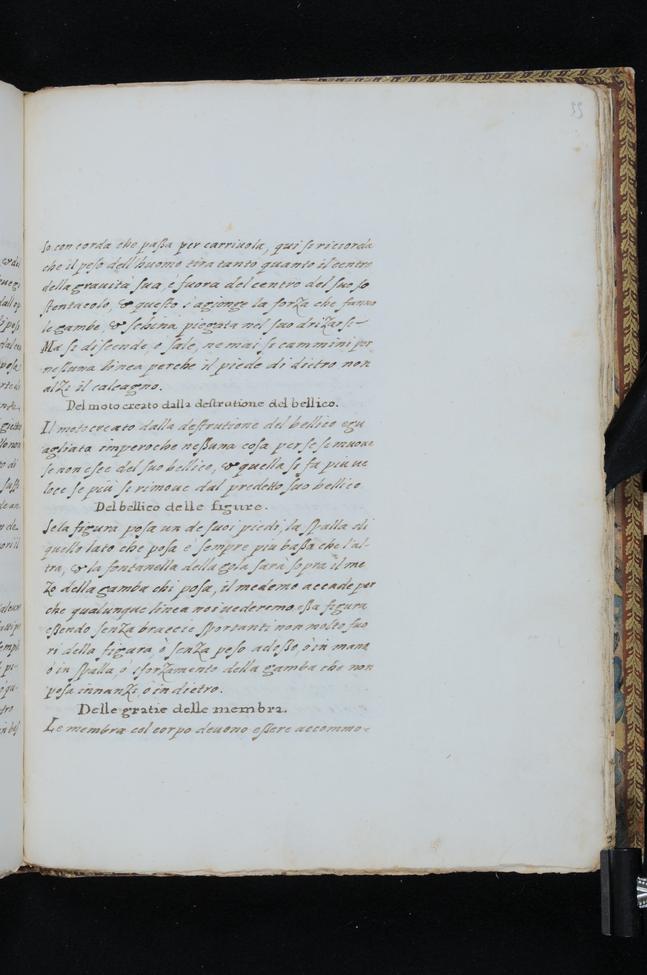 55
lo con corda che passa per carriuola, qui si riccorda
che il peso dell'huomo tira tanto quanto il centro
della gravita sua, e fuora del centro del suo so
stentacolo, & questo s'agionge la forza che fanno
le gambe, & schina piegata nel suo drizarsi
Ma si discende, o sale, ne mai si cammini per
nessuna linea perche il piede di dietro non
alzi il calcagno.
Del moto creato dalla destrutione del bellico.
Il moto creato dalla destrutione del bellico egu
agliata imperoche nessuna cosa per se si muove
se non esce del suo bellico, & quella si fa piu ve
loce se piu si rimove dal predetto suo bellico
Del bellico delle figure.
Se la figura posa un de suoi piedi, la spalla di
quello lato che posa è sempre piu bassa che l'al-
tra, & la fontanella della gola sarà sopra il me
zo della gamba chi posa, il medemo accade per
che qualunque linea noi vederemo essa figura
essendo senza braccie sportanti non molto fuo
ri della figura o senza peso adesso, ò in mana
ò in spalla, ò sforzamento della gamba che non
posa innanzi, o in dietro.
Delle gratie delle membra.
Le membra col corpo devono essere accommo-